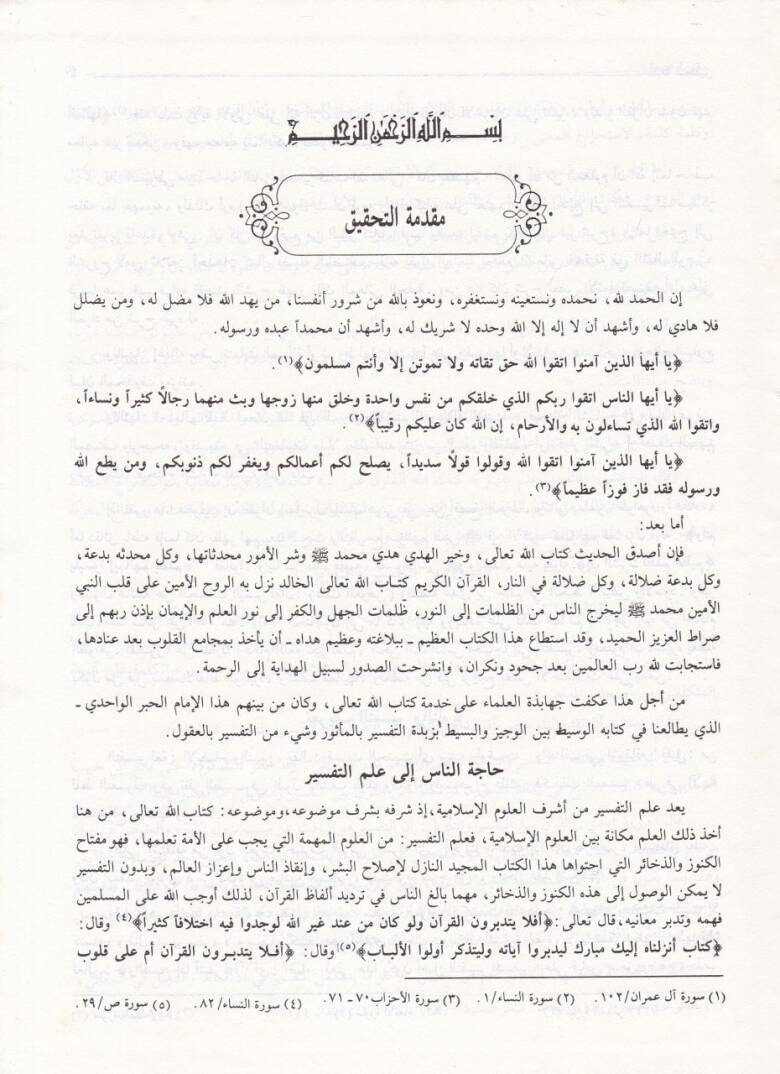 بسم الله الرحمن الرحيم
مقدمة التحقيق
إن الحمد لله، نحمده ونستعينه ونستغفره، ونعوذ بالله من شرور أنفسنا، من يهد الله فلا مضل له، ومن يضلل
فلا هادي له، وأشهد أن لا إله إلا الله وحده لا شريك له، وأشهد أن محمداً عبده ورسوله.
﴿يا أيها الذين آمنوا اتقوا الله حق تقاته ولا تموتن إلا وأنتم مسلمون﴾(١).
﴿يا أيها الناس اتقوا ربكم الذي خلقكم من نفس واحدة وخلق منها زوجها وبث منهما رجالاً كثيراً ونساءاً،
واتقوا الله الذي تساءلون به والأرحام، إن الله كان عليكم رقيباً﴾(٢).
﴿يا أيها الذين آمنوا اتقوا الله وقولوا قولاً سديداً، يصلح لكم أعمالكم ويغفر لكم ذنوبكم، ومن يطع الله
ورسوله فقد فاز فوزاً عظيماً﴾(٣).
أما بعد:
فإن أصدق الحديث كتاب الله تعالى، وخير الهدي هدي محمد ﷺ وشر الأمور محدثاتها، وكل محدثه بدعة،
وكل بدعة ضلالة، وكل ضلالة في النار، القرآن الكريم كتاب الله تعالى الخالد نزل به الروح الأمين على قلب النبي
الأمين محمد ﷺ ليخرج الناس من الظلمات إلى النور، ظلمات الجهل والكفر إلى نور العلم والإيمان بإذن ربهم إلى
صراط العزيز الحميد، وقد استطاع هذا الكتاب العظيم ـ ببلاغته وعظيم هداه ـ أن يأخذ بمجامع القلوب بعد عنادها،
فاستجابت لله رب العالمين بعد جحود ونكران، وانشرحت الصدور لسبيل الهداية إلى الرحمة.
من أجل هذا عكفت جهابذة العلماء على خدمة كتاب الله تعالى، وكان من بينهم هذا الإمام الحبر الواحدي ـ
الذي يطالعنا في كتابه الوسيط بين الوجيز والبسيط بزبدة التفسير بالمأثور وشيء من التفسير بالعقول.
حاجة الناس إلى علم التفسير
يعد علم التفسير من أشرف العلوم الإسلامية، إذ شرفه بشرف موضوعه، وموضوعه: كتاب الله تعالى، من هنا
أخذ ذلك العلم مكانة بين العلوم الإسلامية، فعلم التفسير: من العلوم المهمة التي يجب على الأمة تعلمها، فهو مفتاح
الكنوز والذخائر التي احتواها هذا الكتاب المجيد النازل لإصلاح البشر، وإنقاذ الناس وإعزاز العالم، وبدون التفسير
لا يمكن الوصول إلى هذه الكنوز والذخائر، مهما بالغ الناس في ترديد ألفاظ القرآن، لذلك أوجب الله على المسلمين
فهمه وتدبر معانيه، قال تعالى: ﴿أفلا يتدبرون القرآن ولو كان من عند غير الله لوجدوا فيه اختلافاً كثيراً﴾(٤) وقال:
﴿كتاب أنزلناه إليك مبارك ليدبروا آياته وليتذكر أولوا الألباب﴾(٥) وقال: ﴿أفلا يتدبرون القرآن أم على قلوب
(١) سورة آل عمران/١٠٢. (٢) سورة النساء/١. (٣) سورة الأحزاب ٧٠ ـ ٧١. (٤) سورة النساء/٨٢. (٥) سورة ص/٢٩.